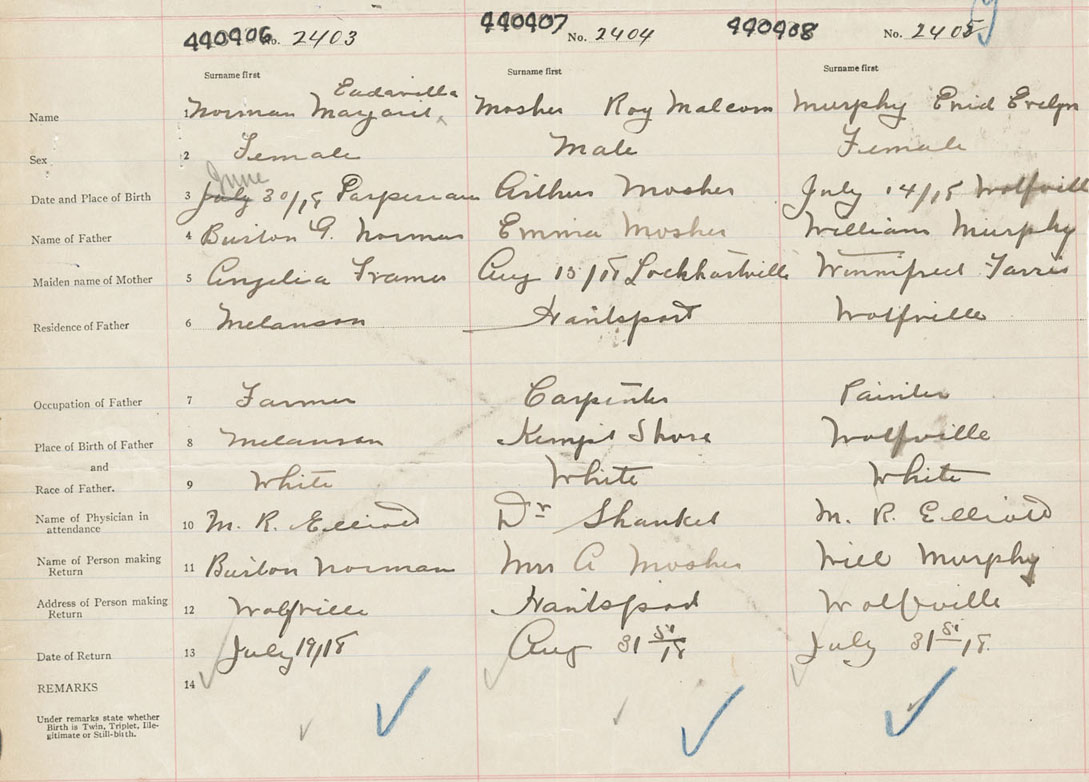 440406 No. 2403 440407 No. 2404 440408 No. 2405
Surname first Surname first Surname first
Eudavilla
Name 1 Norman Margaret Mosher Roy Malcom Murphy Enid Evelyn
Sex 2 Female Male Female
June
Date and Place of Birth 3 July 30/18 Arthur Mosher July 14/18 Wolfville
Name of Father 4 Burton G. Norman Emma Mosher William Murphy
Maiden name of Mother 5 Angelia Aug 13/18 Lockhartville Winnifred Farris
Residence of Father 6 Melanson Hantsport Wolfville
Occupation of Father 7 Farmer Carpenter Painter
Place of Birth of Father 8 Melanson Kempt Shore Wolfville
and
Race of Father. 9 White White White
Name of Physician in
attendance 10 M. R. Elliott Dr Shankel M. R. Elliott
Name of Person making
Return 11 Burton Norman Mrs A Mosher Will Murphy
Address of Person making
Return 12 Wolfville Hantsport Wolfville
Date of Return 13 July 19/18 Aug 31st/18 July 31st/18.
REMARKS 14
Under remarks state whether
Birth is Twin, Triplet, Ille-
gitimate or Still-birth.